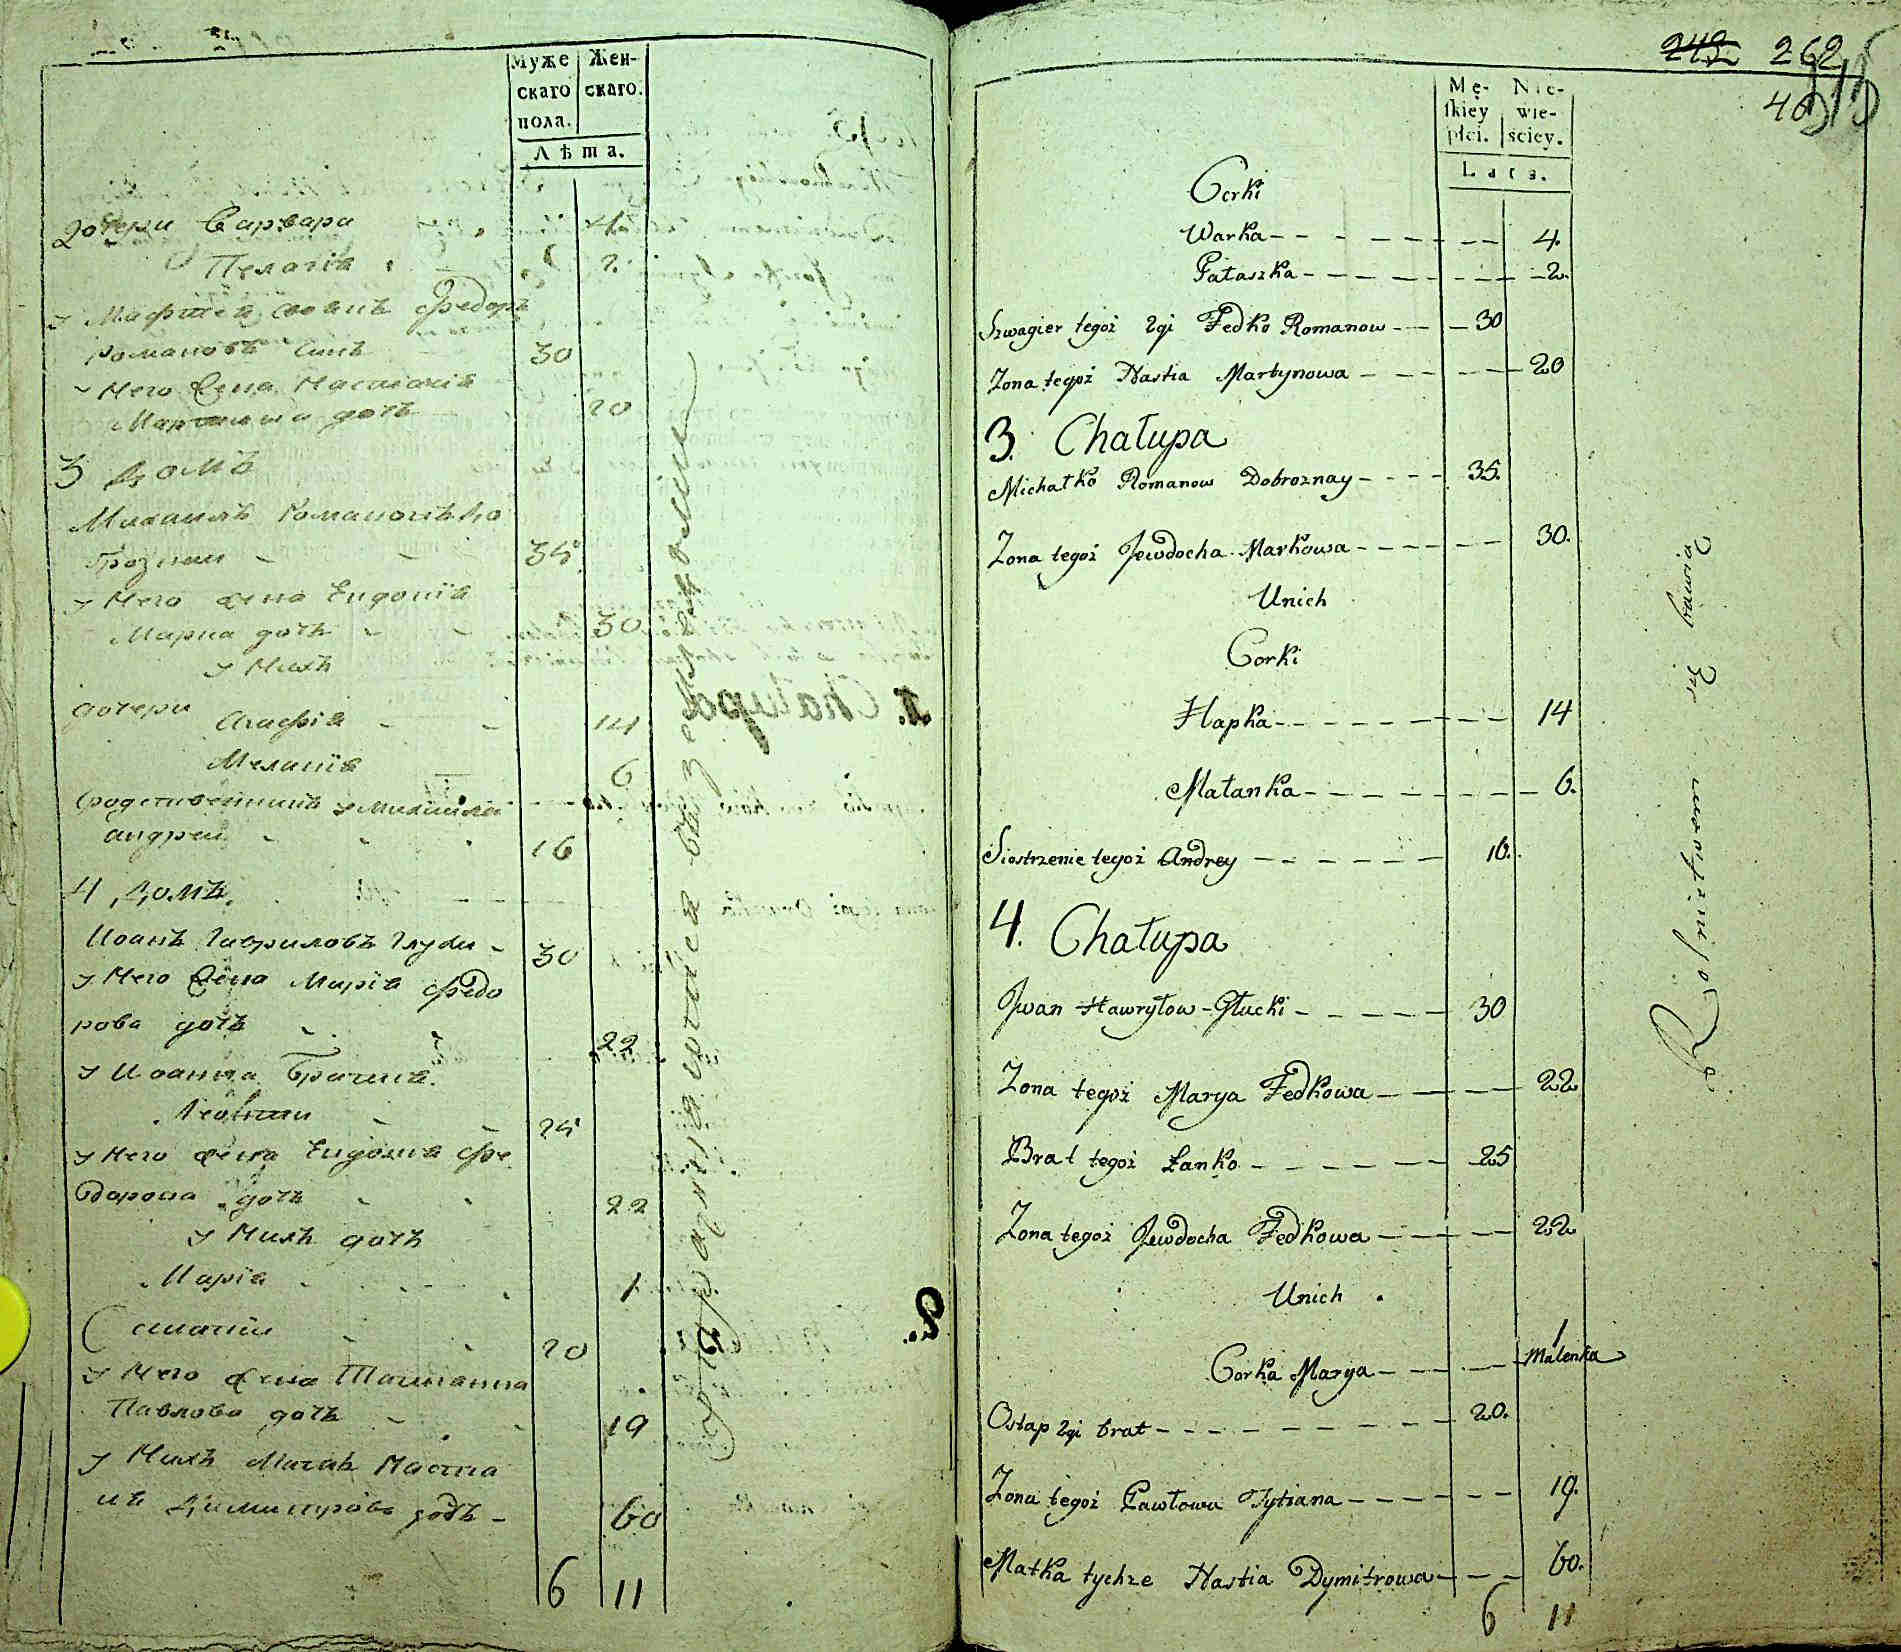 Муже
скаго
пола.
Жен-
скаго.
Лѣта.
дочери Варвара 4
Пелагіа 2
у Мафтеа своякъ Федоръ
Романовъ сынъ 30
у него жена Настасіа
Мартинова дочь 20
3 Домъ
Михаилъ Романовъ До
брознай 35
у него жена Евдокіа
Марка дочь 30
у нихъ
дочери Агафіа 14
Меланіа 6
родственникъ у Михаила
андрей 16
4 Домъ.
Иоанъ Гавриловъ Глуцки 30
у него жена Маріа Федо
рова дочь 22
у Иоанна братъ
25
у него жена Евдокіа Фе
дорова дочь 22
у нихъ дочь
Маріа 1
20
у него жена Татианна
Павлова дочь 19
у нихъ мать Настасіа
Димитрова дочь 60
6 11
242 262
Mę-
skiey
płci.
Nie-
wie-
ściey.
Lata.
Corki
Warka 4.
Pałaszka 2.
Szwagier tegoż 2gi Fedko Romanow 30
Zona tegoż Nastia Martynowa 20
3. Chałupa
Michałko Romanow Dobroznay 35.
Zona tegoż Jewdocha Markowa 30.
Unich
Corki
Hapka 14
Małanka 6.
Siostrzenie tegoż Andrey 16.
4. Chałupa
Jwan Hawryłow Głucki 30
Zona tegoż Marya Fedkowa 22
Brat tegoż Łanko 25
Zona tegoż Jewdocha Fedkowa 22
Unich
Corka Marya 1 Malenka
Ostap 2gi brat 20.
Zona tegoż Pawłowa Tytiana 19.
Matka tychże Nastia Dymitrowa 60.
6 11
Rolnictwem się bawią